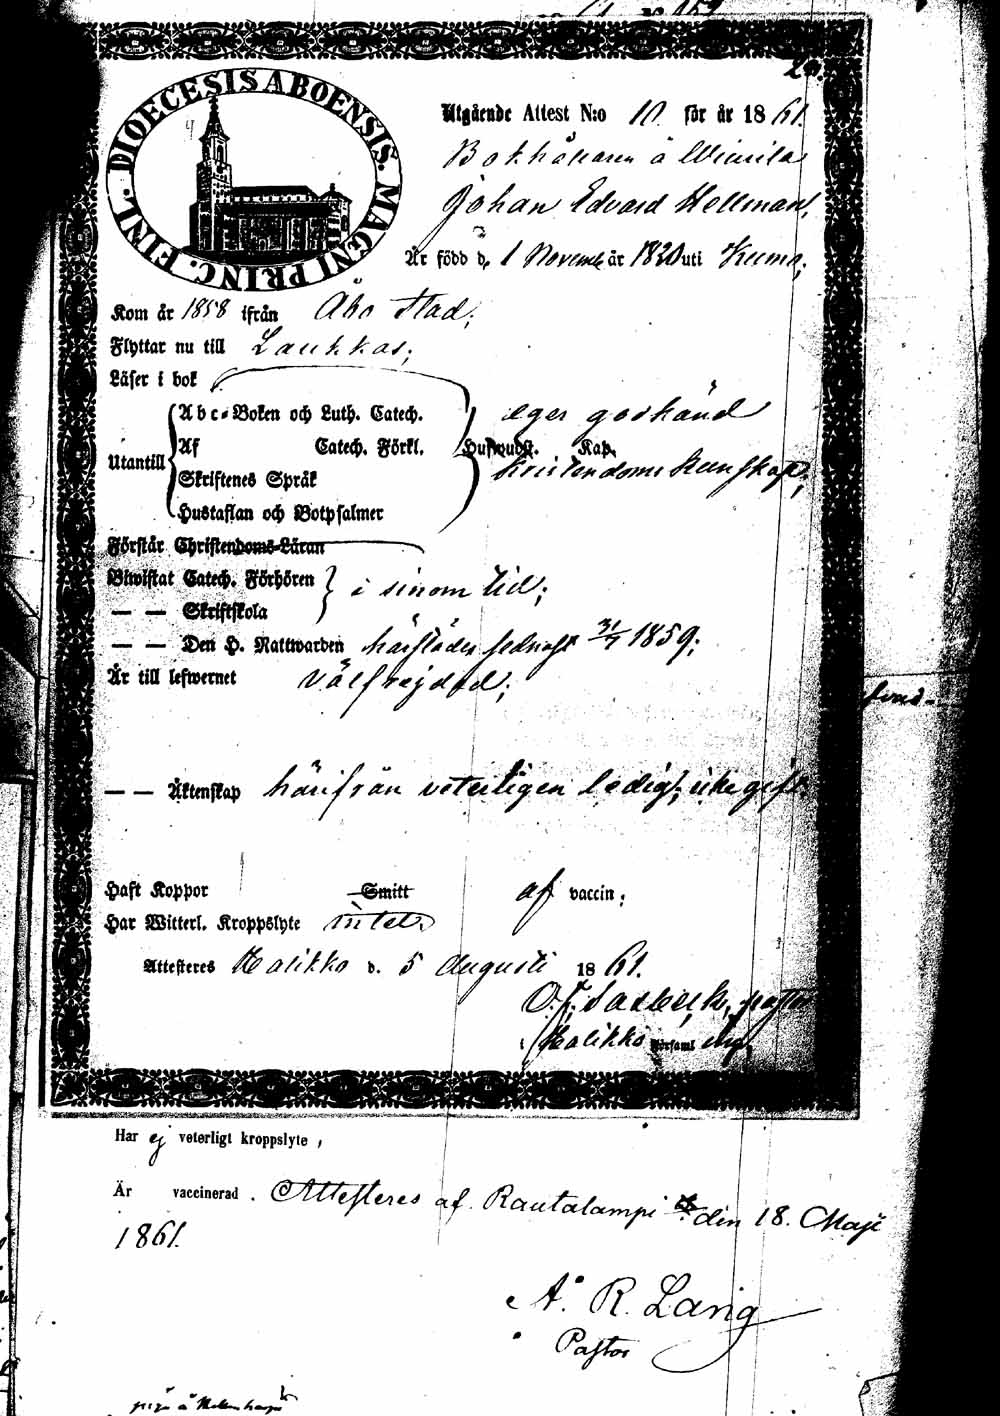 DIOECESIS ABOENSIS. MAGNI PRINC. FINL.
Utgående Attest N:o 10 för år 1861.
Bokhållaren å Wiurila
Johan Edvard Hellman,
Är född d. 1 November år 1820 uti Kumo;
Kom år 1858 ifrån Åbo stad;
Flyttar nu till Laukkas;
Läser i bok
Utantill
Abc-Boken och Luth. Catech.
Af Catech. Förkl.
Skriftenes Språk
Hustaflan och Botpsalmer
Hufwudst. Kap.
eger godkänd
kristendoms kunskap;
Förstår Christendoms-Läran
Biwistat Catech. Förhören
— — Skriftskola
i sinom tid;
— — Den H. Nattwarden härstädes sednast 31/7 1859;
Är till lefwernet välfrejdad;
— — Äktenskap härifrån veterligen ledig,
Haft Koppor Smitt af vaccin;
Har Witterl. Kroppslyte intet.
Attesteres Halikko d. 5 Augusti 1861.
Halikko Församl
Har ej veterligt kroppslyte,
Är vaccinerad. Attesteres af. Rautalampi den 18. Maji
1861.
A. R. Lang
Pastor